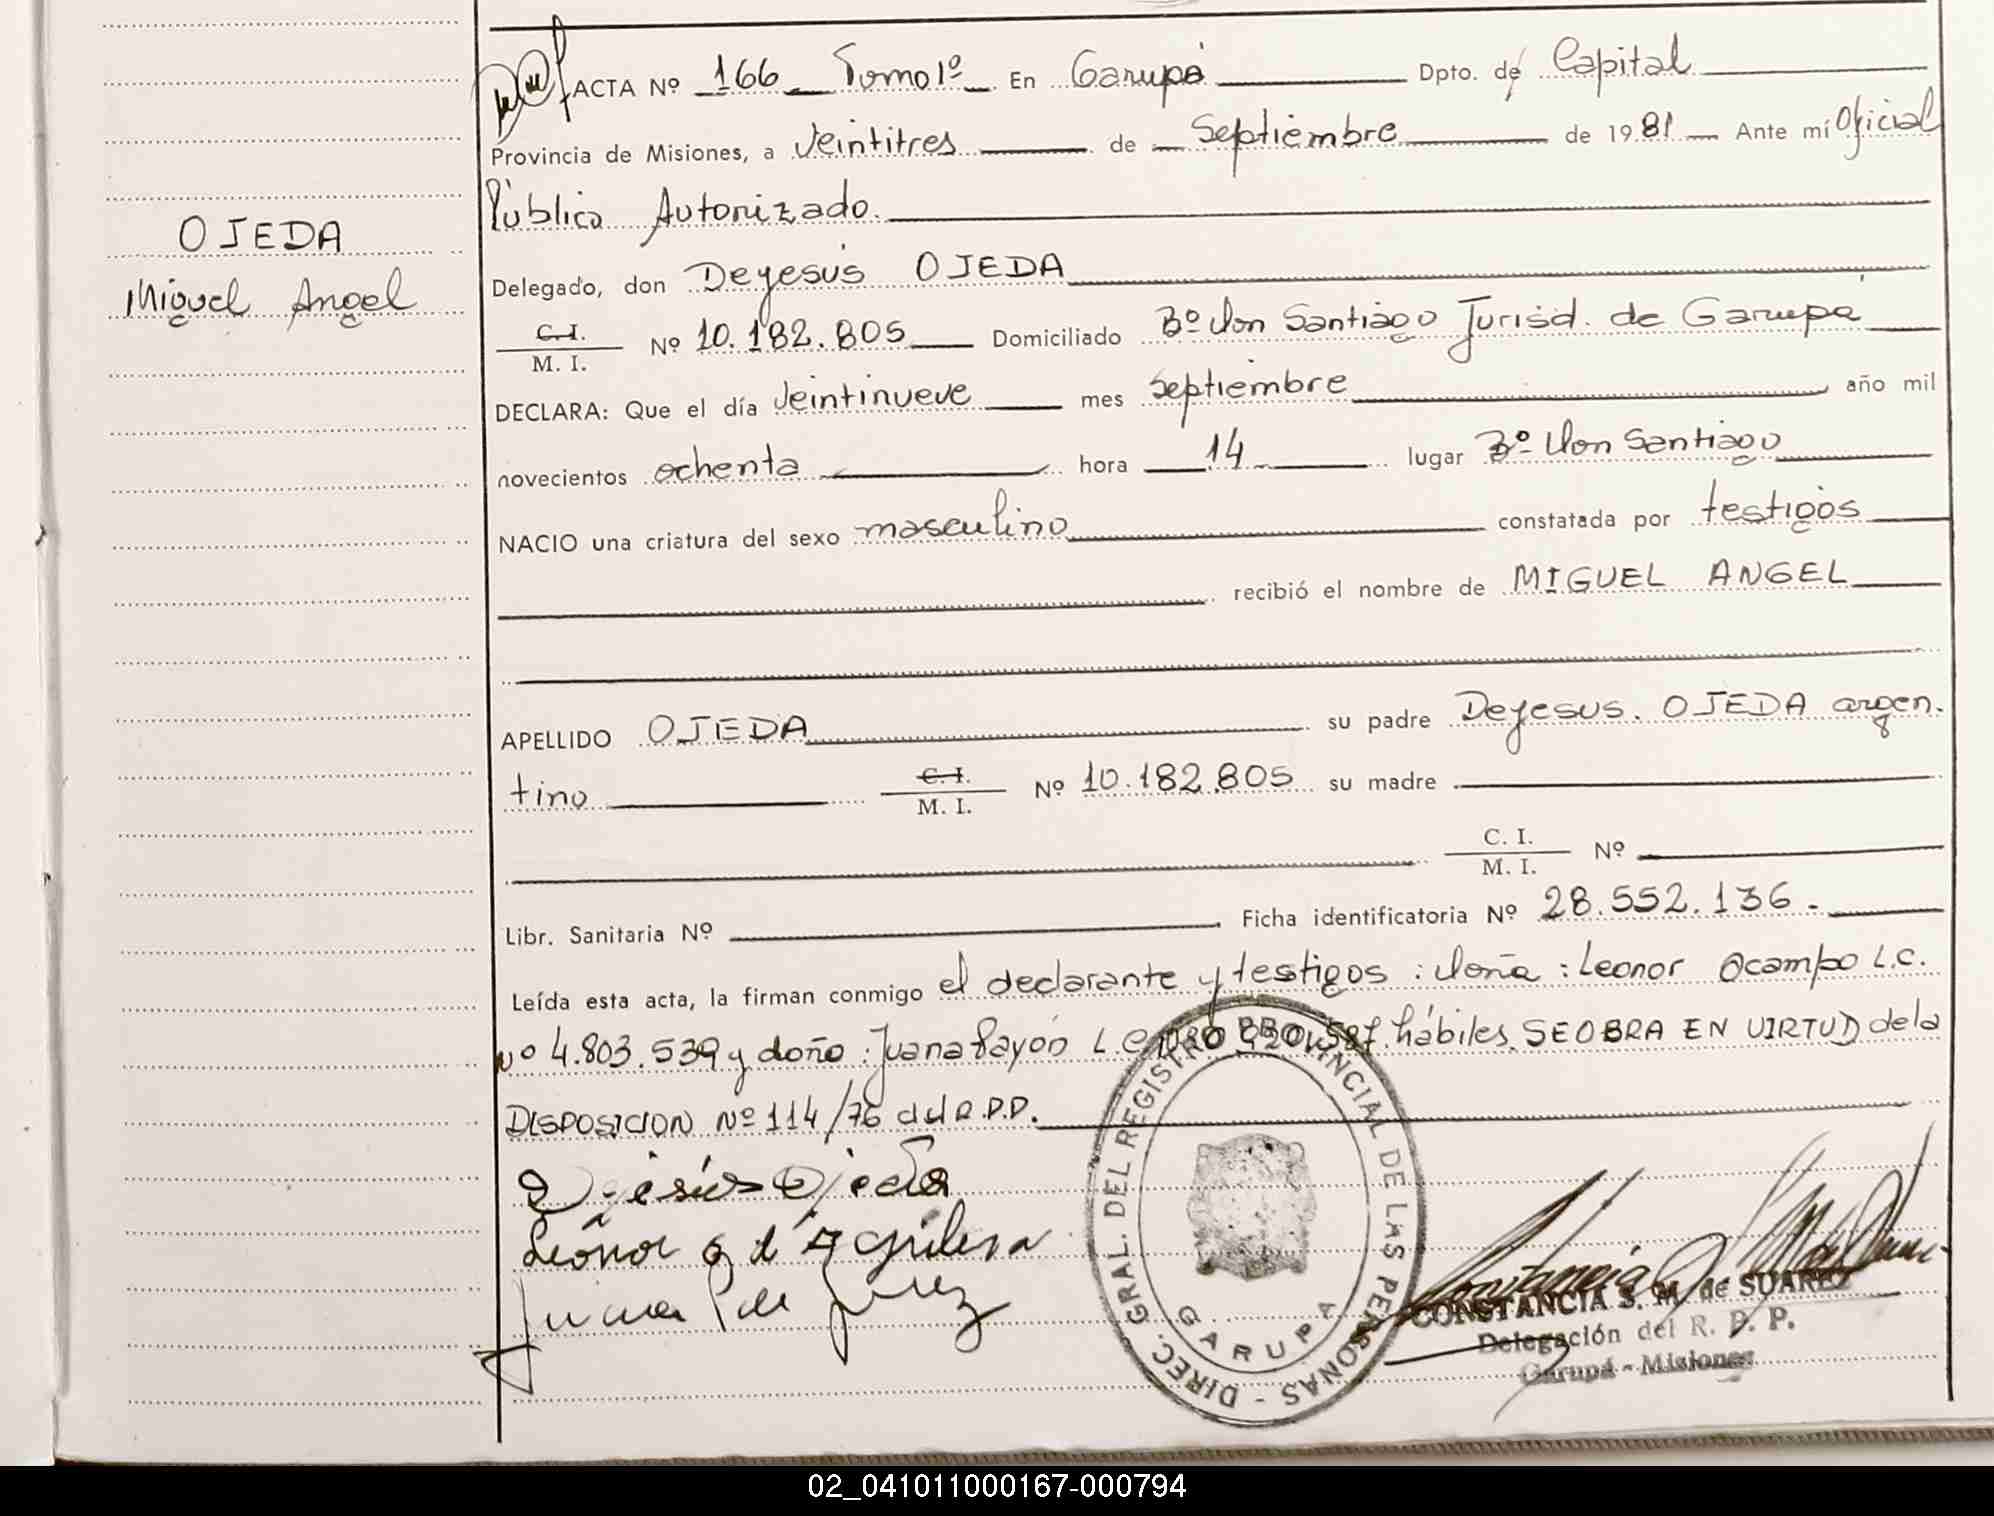 ACTA Nº 166 Tomo 1º En Garupá Dpto. de Capital
Provincia de Misiones, a veintitres de Septiembre de 1981 Ante mí Oficial
Público Autorizado.
OJEDA
Miguel Angel
Delegado, don Deyesús OJEDA
C.I. / M. I. Nº 10.182.805 Domiciliado Bº Don Santiago Jurisd. de Garupá
DECLARA: Que el día veintinueve mes septiembre año mil
novecientos ochenta hora 14 lugar Bº Don Santiago
NACIO una criatura del sexo masculino constatada por testigos
recibió el nombre de MIGUEL ANGEL
APELLIDO OJEDA su padre Deyesus. OJEDA argen.
tino C. I. / M. I. Nº 10.182.805 su madre
C. I. / M. I. Nº
Libr. Sanitaria Nº Ficha identificatoria Nº 28.552.136.
Leída esta acta, la firman conmigo el declarante y testigos : doña : Leonor Ocampo L.C.
Nº 4.803.539 y doño : Juana Payón L.C. hábiles. SEOBRA EN VIRTUD de la
DISPOSICION Nº 114/76 del R.P.P.
Ojeda
Leonor O d
Juana P de
DIREC. GRAL. DEL REGISTRO PROVINCIAL DE LAS PERSONAS -
GARUPA
CONSTANCIA S. M. de SUAREZ
Delegación del R. P. P.
Garupá - Misiones
02_041011000167-000794